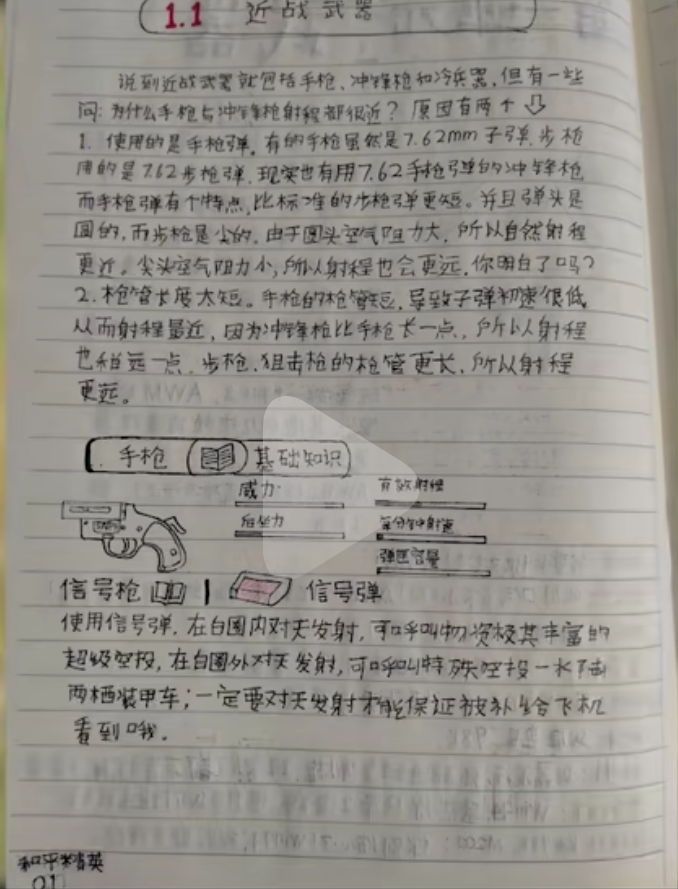 1.1 近战武器
说到近战武器就包括手枪、冲锋枪和冷兵器,但有一些
问:为什么手枪与冲锋枪射程都很近?原因有两个⇩
1. 使用的是手枪弹。有的手枪虽然是7.62mm子弹,步枪
用的是7.62步枪弹,现实也有用7.62手枪弹的冲锋枪
而手枪弹有个特点,比标准的步枪弹更短。并且弹头是
圆的,而步枪是尖的,由于圆头空气阻力大,所以自然射程
更近。尖头空气阻力小,所以射程也会更远,你明白了吗?
2.枪管长度太短。手枪的枪管短,导致子弹初速很低
从而射程最近,因为冲锋枪比手枪长一点,所以射程
也稍远一点,步枪,狙击枪的枪管更长,所以射程
更远。
手枪 基础知识
威力 有效射程
后坐力 每分钟射速
弹匣容量
信号枪 | 信号弹
使用信号弹,在白圈内对天发射,可呼叫物资极其丰富的
超级空投,在白圈外对天发射,可呼叫特殊空投一水陆
两栖装甲车;一定要对天发射才能保证被补给飞机
看到哦.
和平精英
01